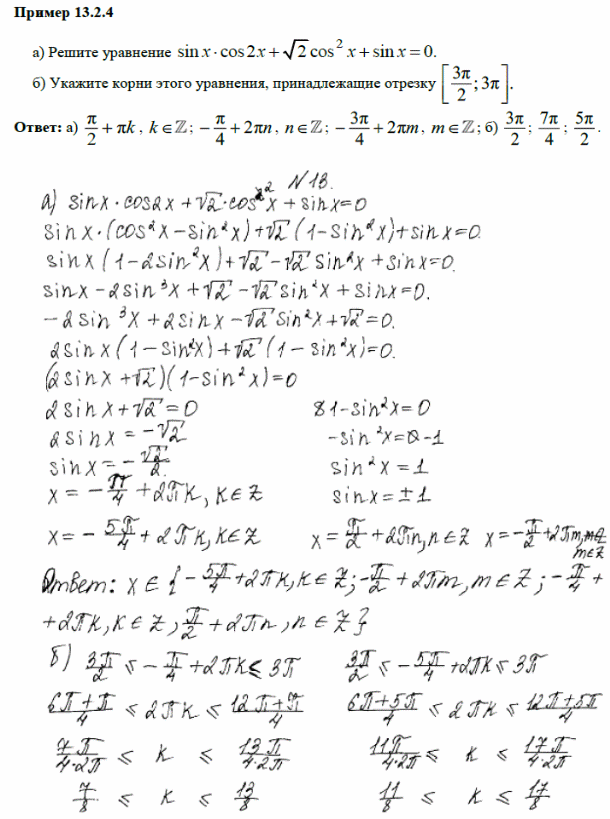 Пример 13.2.4
а) Решите уравнение sin x · cos 2x + √2 cos² x + sin x = 0.
б) Укажите корни этого уравнения, принадлежащие отрезку [3π/2; 3π].
Ответ: а) π/2 + πk, k ∈ ℤ; −π/4 + 2πn, n ∈ ℤ; −3π/4 + 2πm, m ∈ ℤ; б) 3π/2; 7π/4; 5π/2.
N 13.
а) sin x · cos2x + √2 · cos² x + sin x = 0
sin x · (cos²x − sin²x) + √2 (1 − sin²x) + sin x = 0.
sin x (1 − 2sin²x) + √2 − √2 sin²x + sin x = 0.
sin x − 2 sin³x + √2 − √2 sin²x + sin x = 0.
−2 sin³x + 2 sin x − √2 sin²x + √2 = 0.
2 sin x (1 − sin²x) + √2 (1 − sin²x) = 0.
(2 sin x + √2)(1 − sin²x) = 0
2 sin x + √2 = 0 1 − sin²x = 0
2 sin x = −√2 −sin²x = −1
sin x = −√2/2 sin²x = 1
x = −π/4 + 2πk, k ∈ Z sin x = ±1
x = −5π/4 + 2πk, k ∈ Z x = π/2 + 2πn, n ∈ Z x = −π/2 + 2πm, m ∈ Z
Ответ: x ∈ { −5π/4 + 2πk, k ∈ Z; −π/2 + 2πm, m ∈ Z; −π/4 +
+ 2πk, k ∈ Z, π/2 + 2πn, n ∈ Z }
б) 3π/2 ≤ −π/4 + 2πk ≤ 3π 3π/2 ≤ −5π/4 + 2πk ≤ 3π
6π+π/4 ≤ 2πk ≤ 12π+π/4 6π+5π/4 ≤ 2πk ≤ 12π+5π/4
7π/4·2π ≤ k ≤ 13π/4·2π 11π/4·2π ≤ k ≤ 17π/4·2π
7/8 ≤ k ≤ 13/8 11/8 ≤ k ≤ 17/8